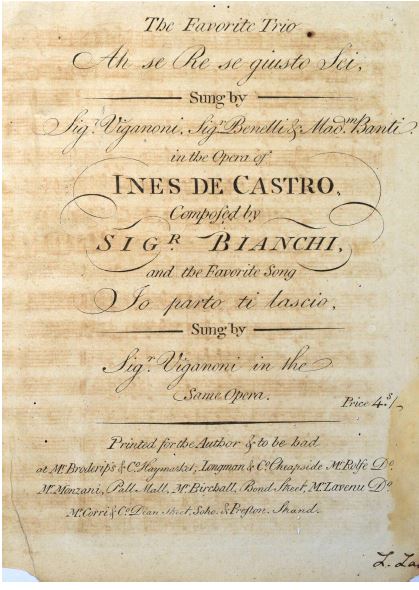 The Favorite Trio
Ah se Re se giusto Sei,
Sung by
Sigr. Viganoni, Sigr. Benelli & Madm. Banti
in the Opera of
INES DE CASTRO,
Composed by
SIGR. BIANCHI,
and the Favorite Song
Io parto ti lascio,
Sung by
Sigr. Viganoni in the
Same Opera.
Price 4s/-
Printed for the Author & to be had
at Mr. Broderip's & Co. Haymarket, Longman & Co. Cheapside Mr. Rolfe Do.
Mr. Monzani, Pall Mall, Mr. Birchall, Bond Street, Mr. Lavenu Do.
Mr. Corri & Co. Dean Street, Soho. & Preston. Strand.